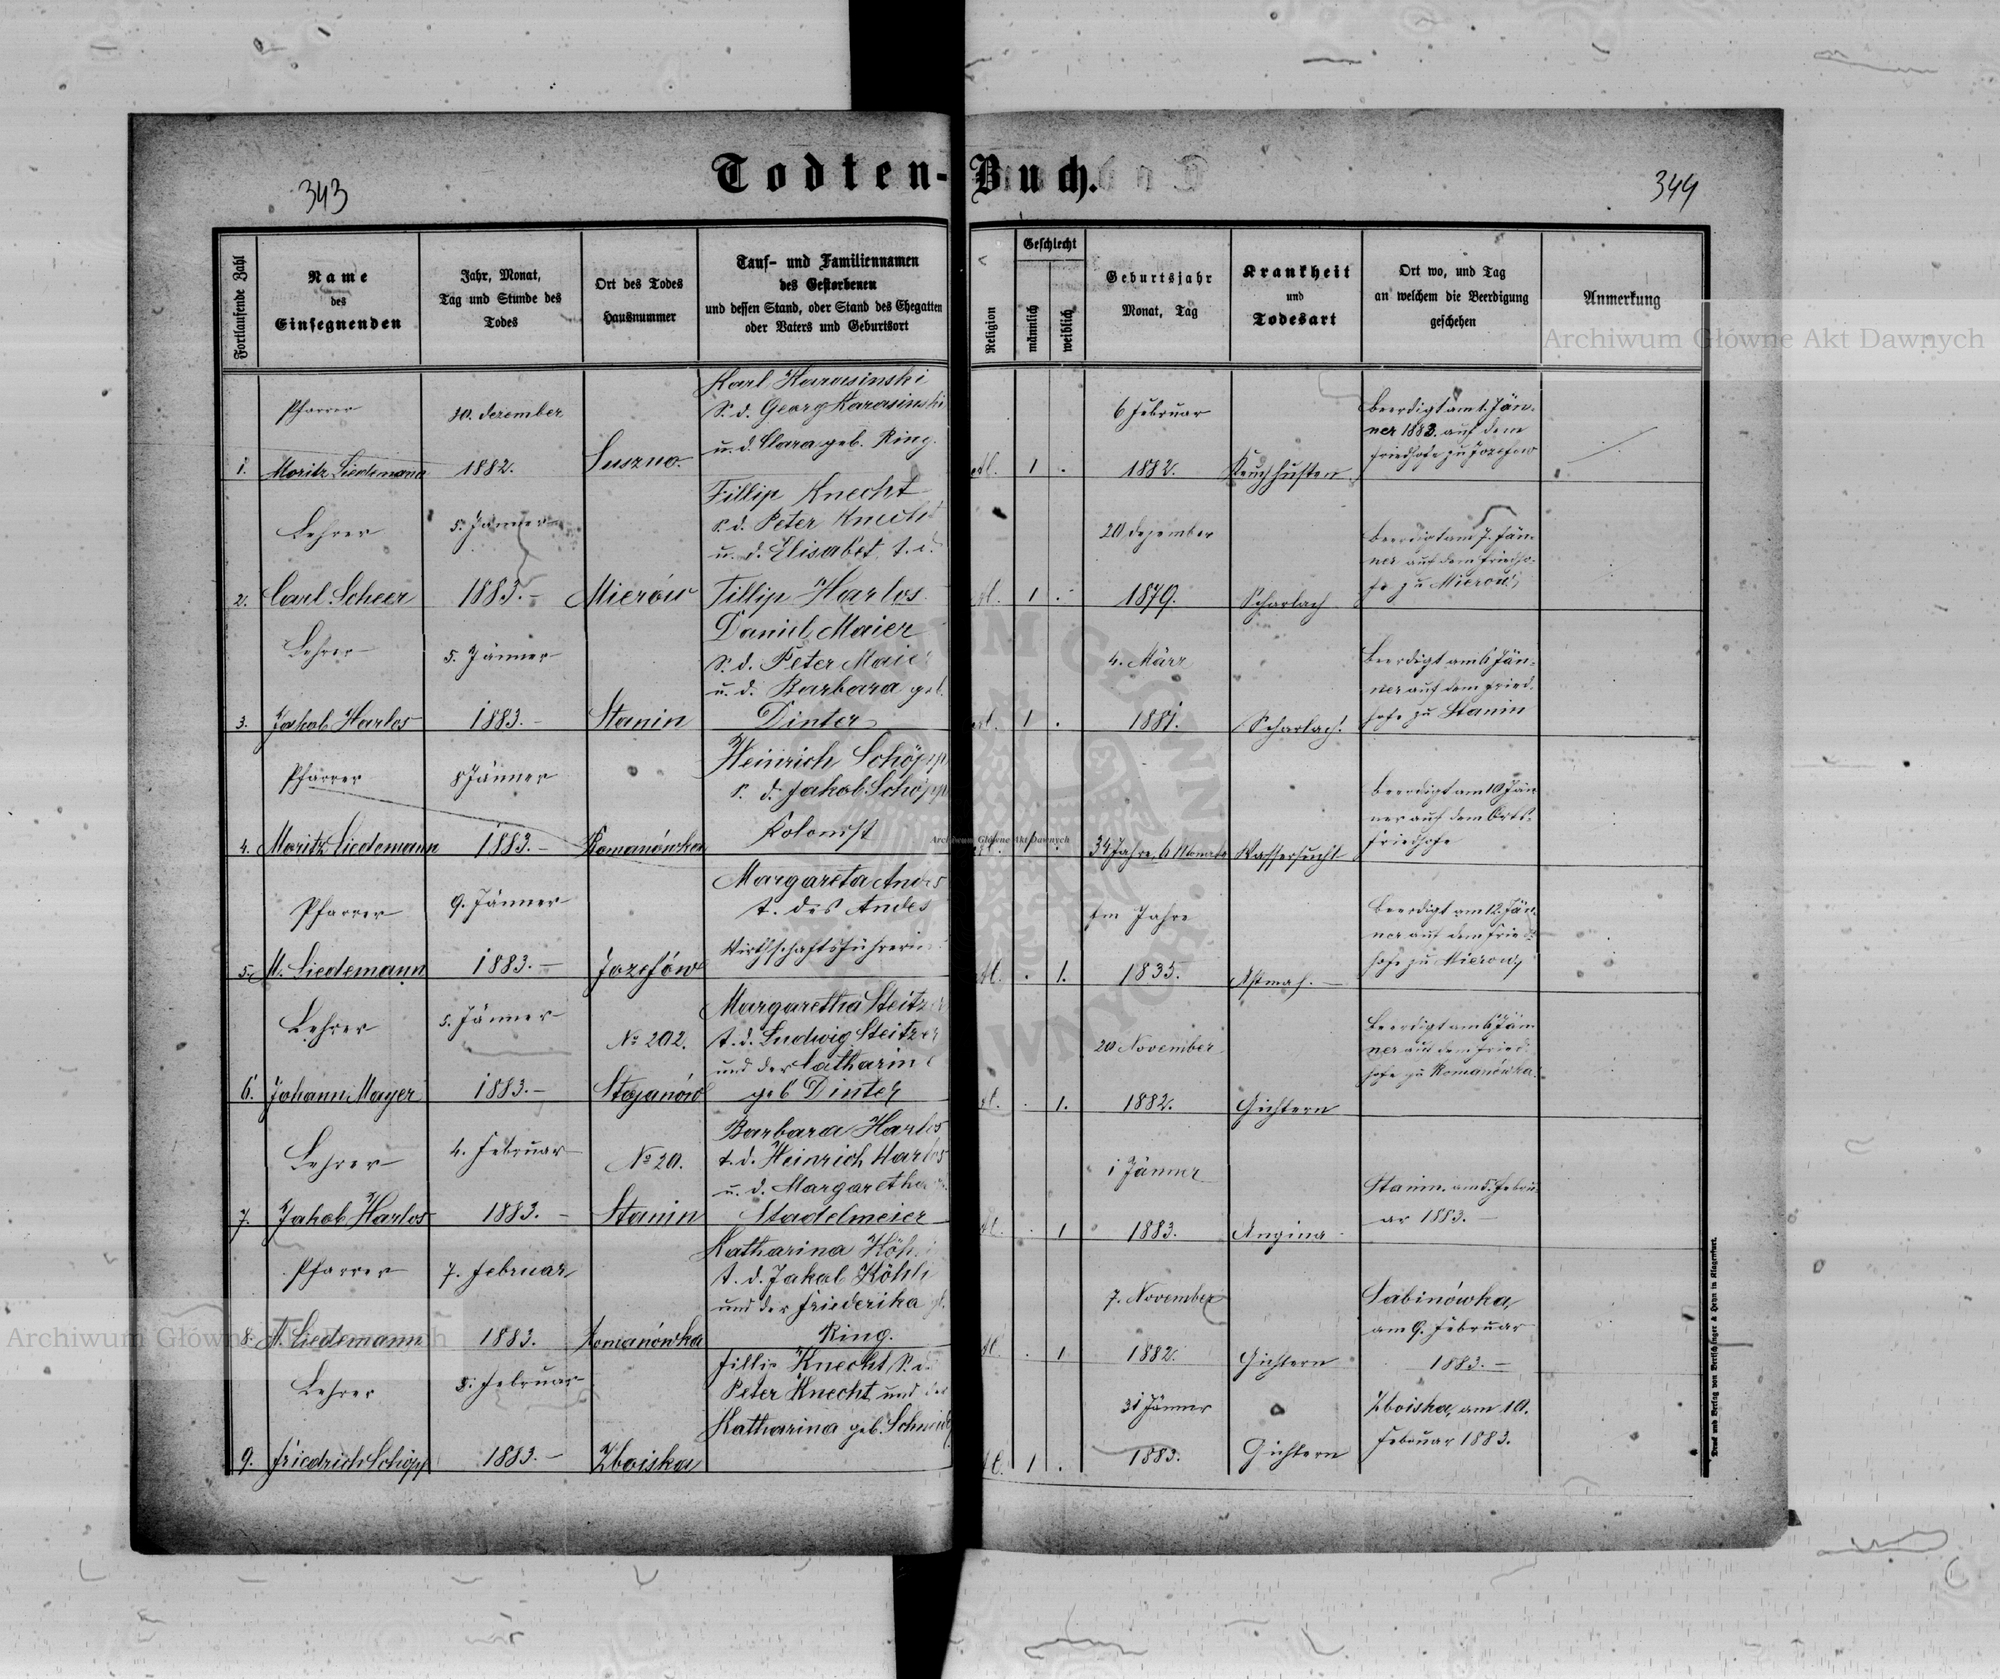 Todten-Buch.
343
344
Fortlaufende Zahl
Name
des
Einsegnenden
Jahr, Monat,
Tag und Stunde des
Todes
Ort des Todes
Hausnummer
Tauf- und Familiennamen
des Gestorbenen
und dessen Stand, oder Stand des Ehegatten
oder Vaters und Geburtsort
Religion
Geschlecht
männlich
weiblich
Geburtsjahr
Monat, Tag
Krankheit
und
Todesart
Ort wo, und Tag
an welchem die Beerdigung
geschehen
Anmerkung
1.
Pfarrer
Moritz Liedemann
30. dezember
1882.
Suszno.
Karl Karasinski
S. d. Georg Karasinski
u. d. Clara geb. Ring.
1
.
6 Februar
1882.
Keuchhusten
beerdigt am 1. Jän-
ner 1883. auf dem
Friedhofe zu Jozefow
2.
Lehrer
Carl Scheer
5. Jänner
1883.-
Mierów
Fillip Knecht
S. d. Peter Knecht
u. d. Elisabet, t. d.
Fillip Harlos.
1
.
20 dezember
1879.
Scharlach
beerdigt am 7. Jän-
ner auf dem Friedho-
fe zu Mierow,
3.
Lehrer
Jakob Harlos
5. Jänner
1883.-
Stanin
Daniel Maier
S. d. Peter Maier
u. d. Barbara geb.
Dinter
1
.
4. März
1881.
Scharlach.
beerdigt am 6 Jän-
ner auf dem Fried-
hofe zu Stanin
4.
Pfarrer
Moritz Liedemann
8 Jänner
1883.-
Romanówka
Heinrich Schöpp
s. d. Jakob Schöpp
Kolonist
34 Jahre, 6 Monate
Wassersucht
beerdigt am 10 Jän-
ner auf dem Orts-
friedhofe
5.
Pfarrer
M. Liedemann
9. Jänner
1883.-
Jozefów
Margareta Andes
t. des Andes
Wirthschaftsführerin
.
1.
Im Jahre
1835.
Astmah.
beerdigt am 12. Jän-
ner auf dem Fried-
hofe zu Mierow,
6.
Lehrer
Johann Mayer
5. Jänner
1883.-
No 202.
Stojanów
Margaretha Steitzer
t. d. Ludwig Steitzer
und der Catharine
geb Dinter
.
1.
20 November
1882.
Gichtern
beerdigt am 6 Jän-
ner auf dem Fried-
hofe zu Romanówka.
7.
Lehrer
Jakob Harlos
4. Februar
1883.-
No 20.
Stanin
Barbara Harlos
t. d. Heinrich Harlos
u. d. Margaretha
Stadelmeier
.
1
1 Jänner
1883.
Angina
Stanin. am 5. Febru-
ar 1883.-
8.
Pfarrer
M. Liedemann
7. Februar
1883.
Romanówka
Katharina
t. d. Jakob
und der Friederika
Ring.
.
1
7. November
1882.
Gichtern
Sabinówka,
am 9. Februar
1883.-
9.
Lehrer
Friedrich Schöpp
8. Februar
1883.-
Zboiska
Fillip Knecht S. d.
Peter Knecht und der
Katharina geb. Schneider
1
.
31 Jänner
1883.
Gichtern
Zboiska, am 10.
Februar 1883.
Druck und Verlag von Bertschinger & Heyn in Klagenfurt.
Archiwum Główne Akt Dawnych
Archiwum Główne Akt Dawnych
Archiwum Główne Akt Dawnych